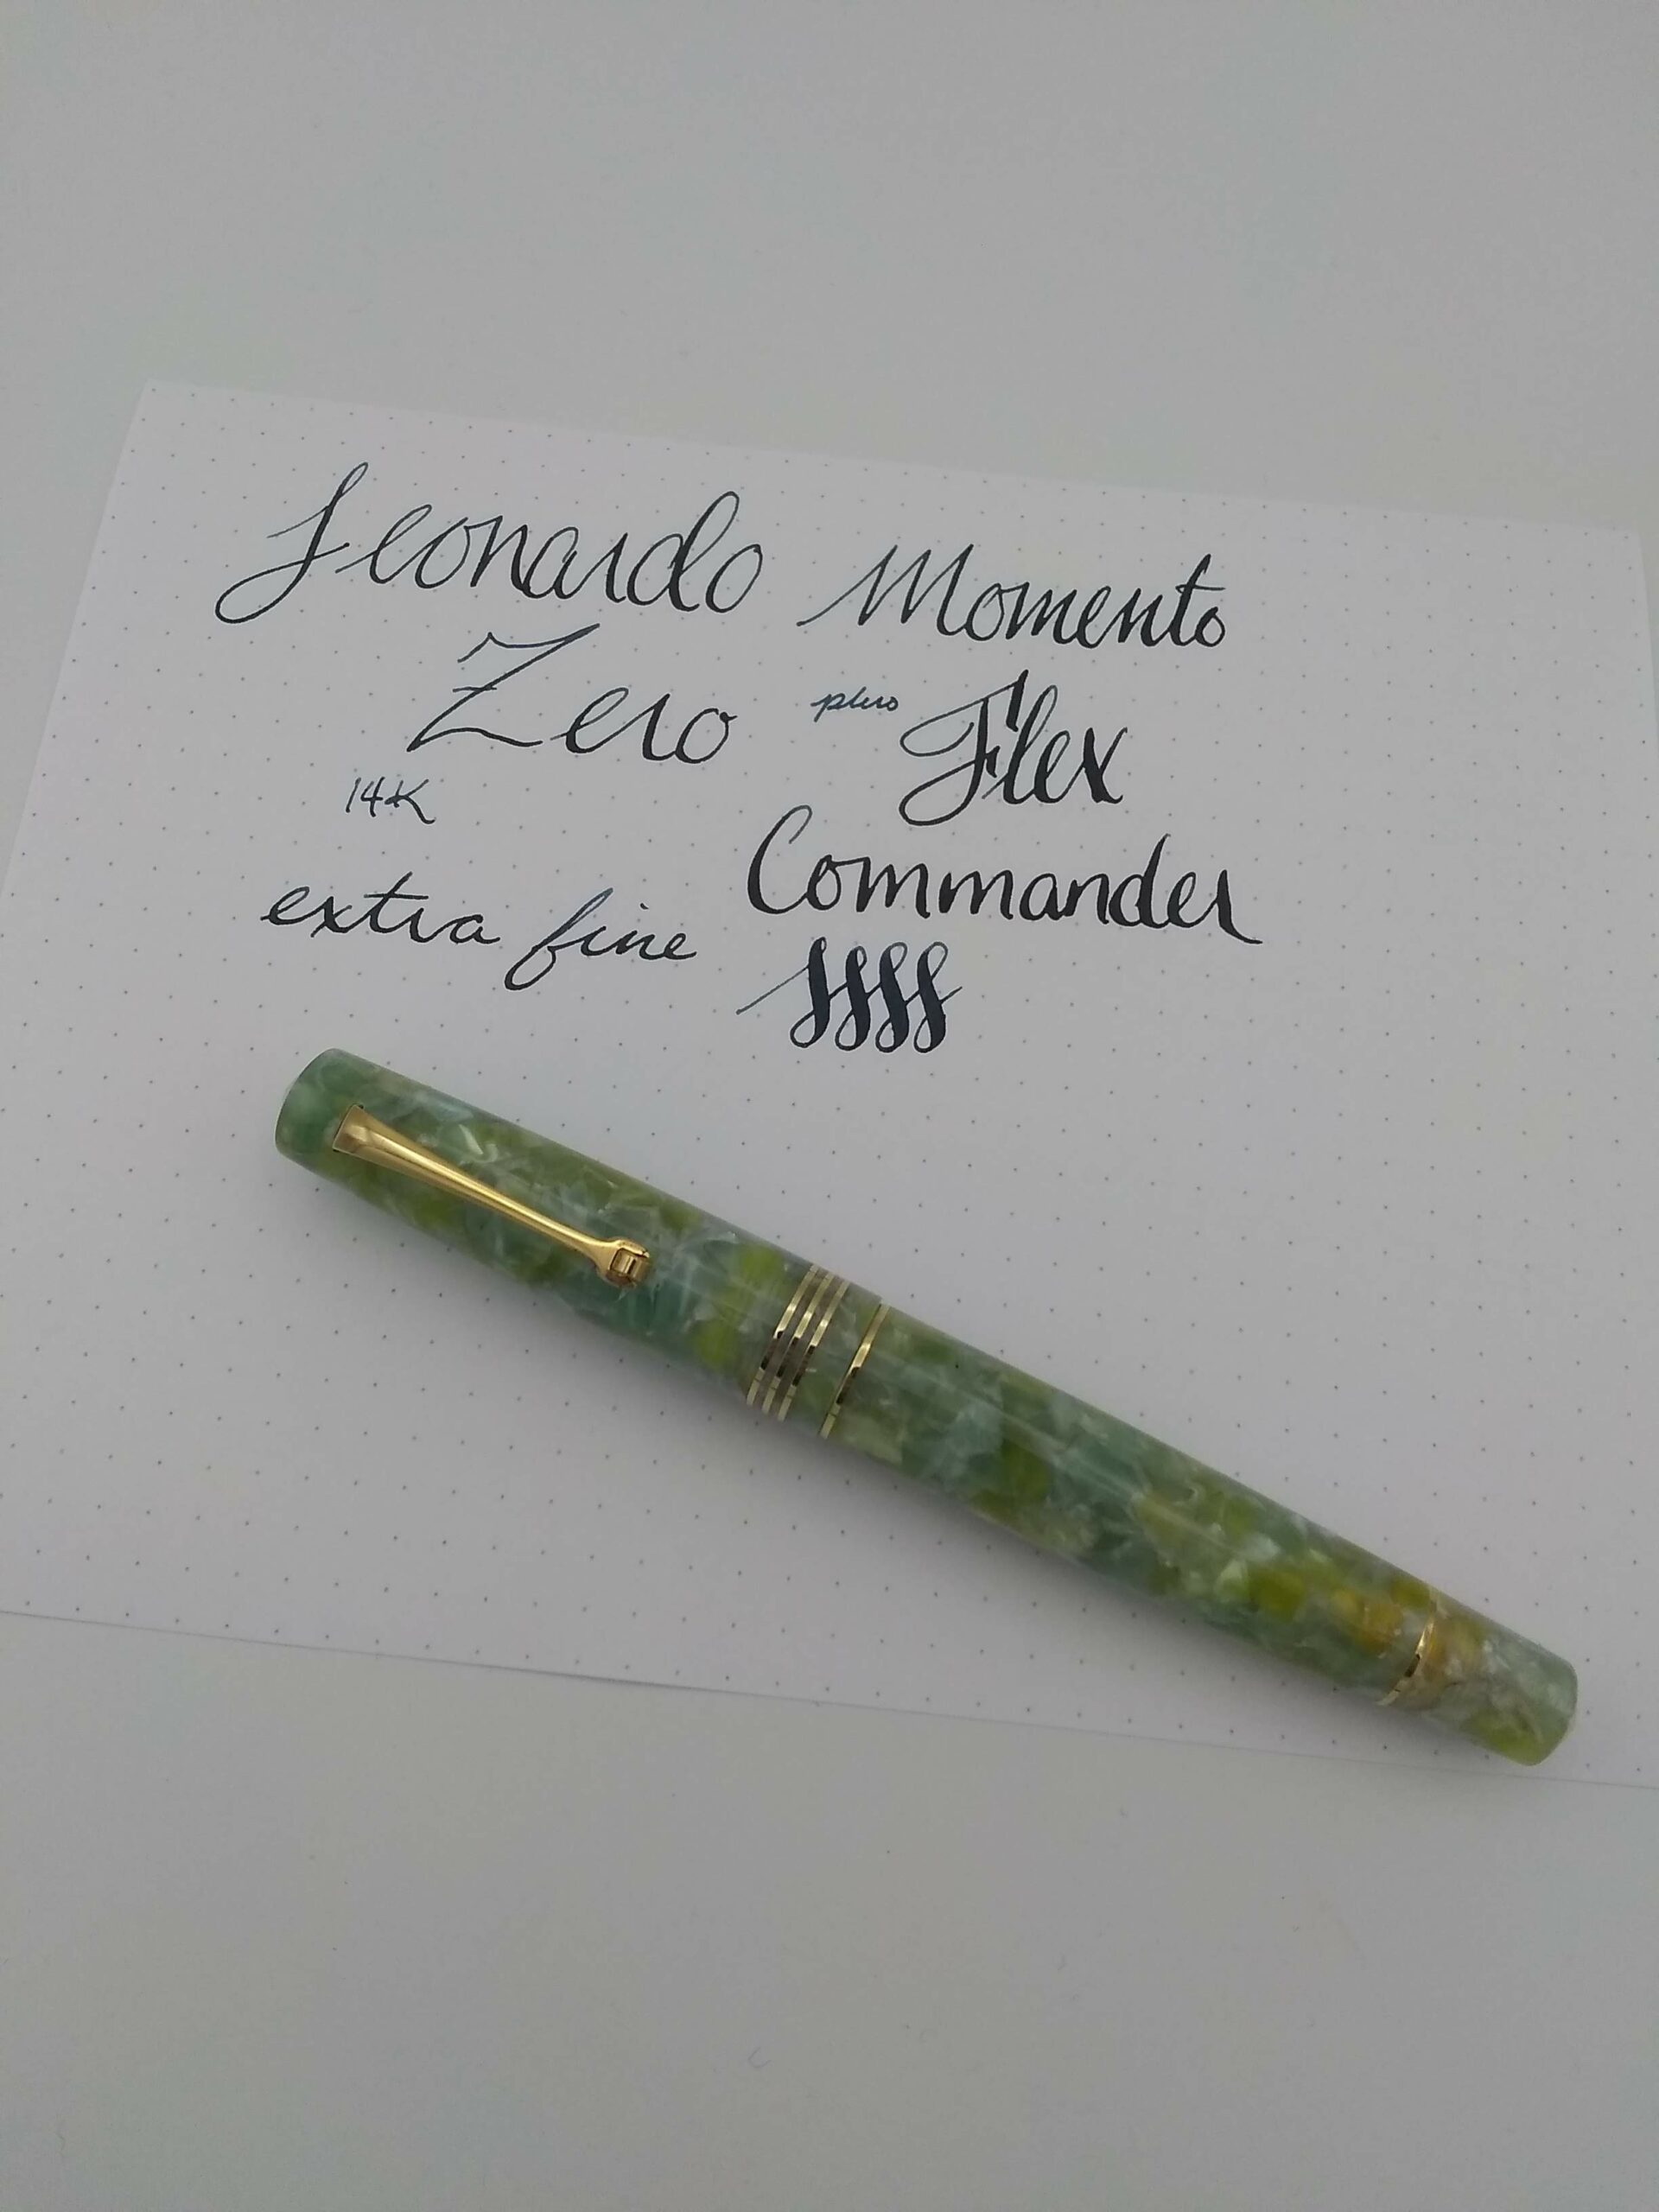 Leonardo Momento
Zero plus Flex
14K
Commander
extra fine